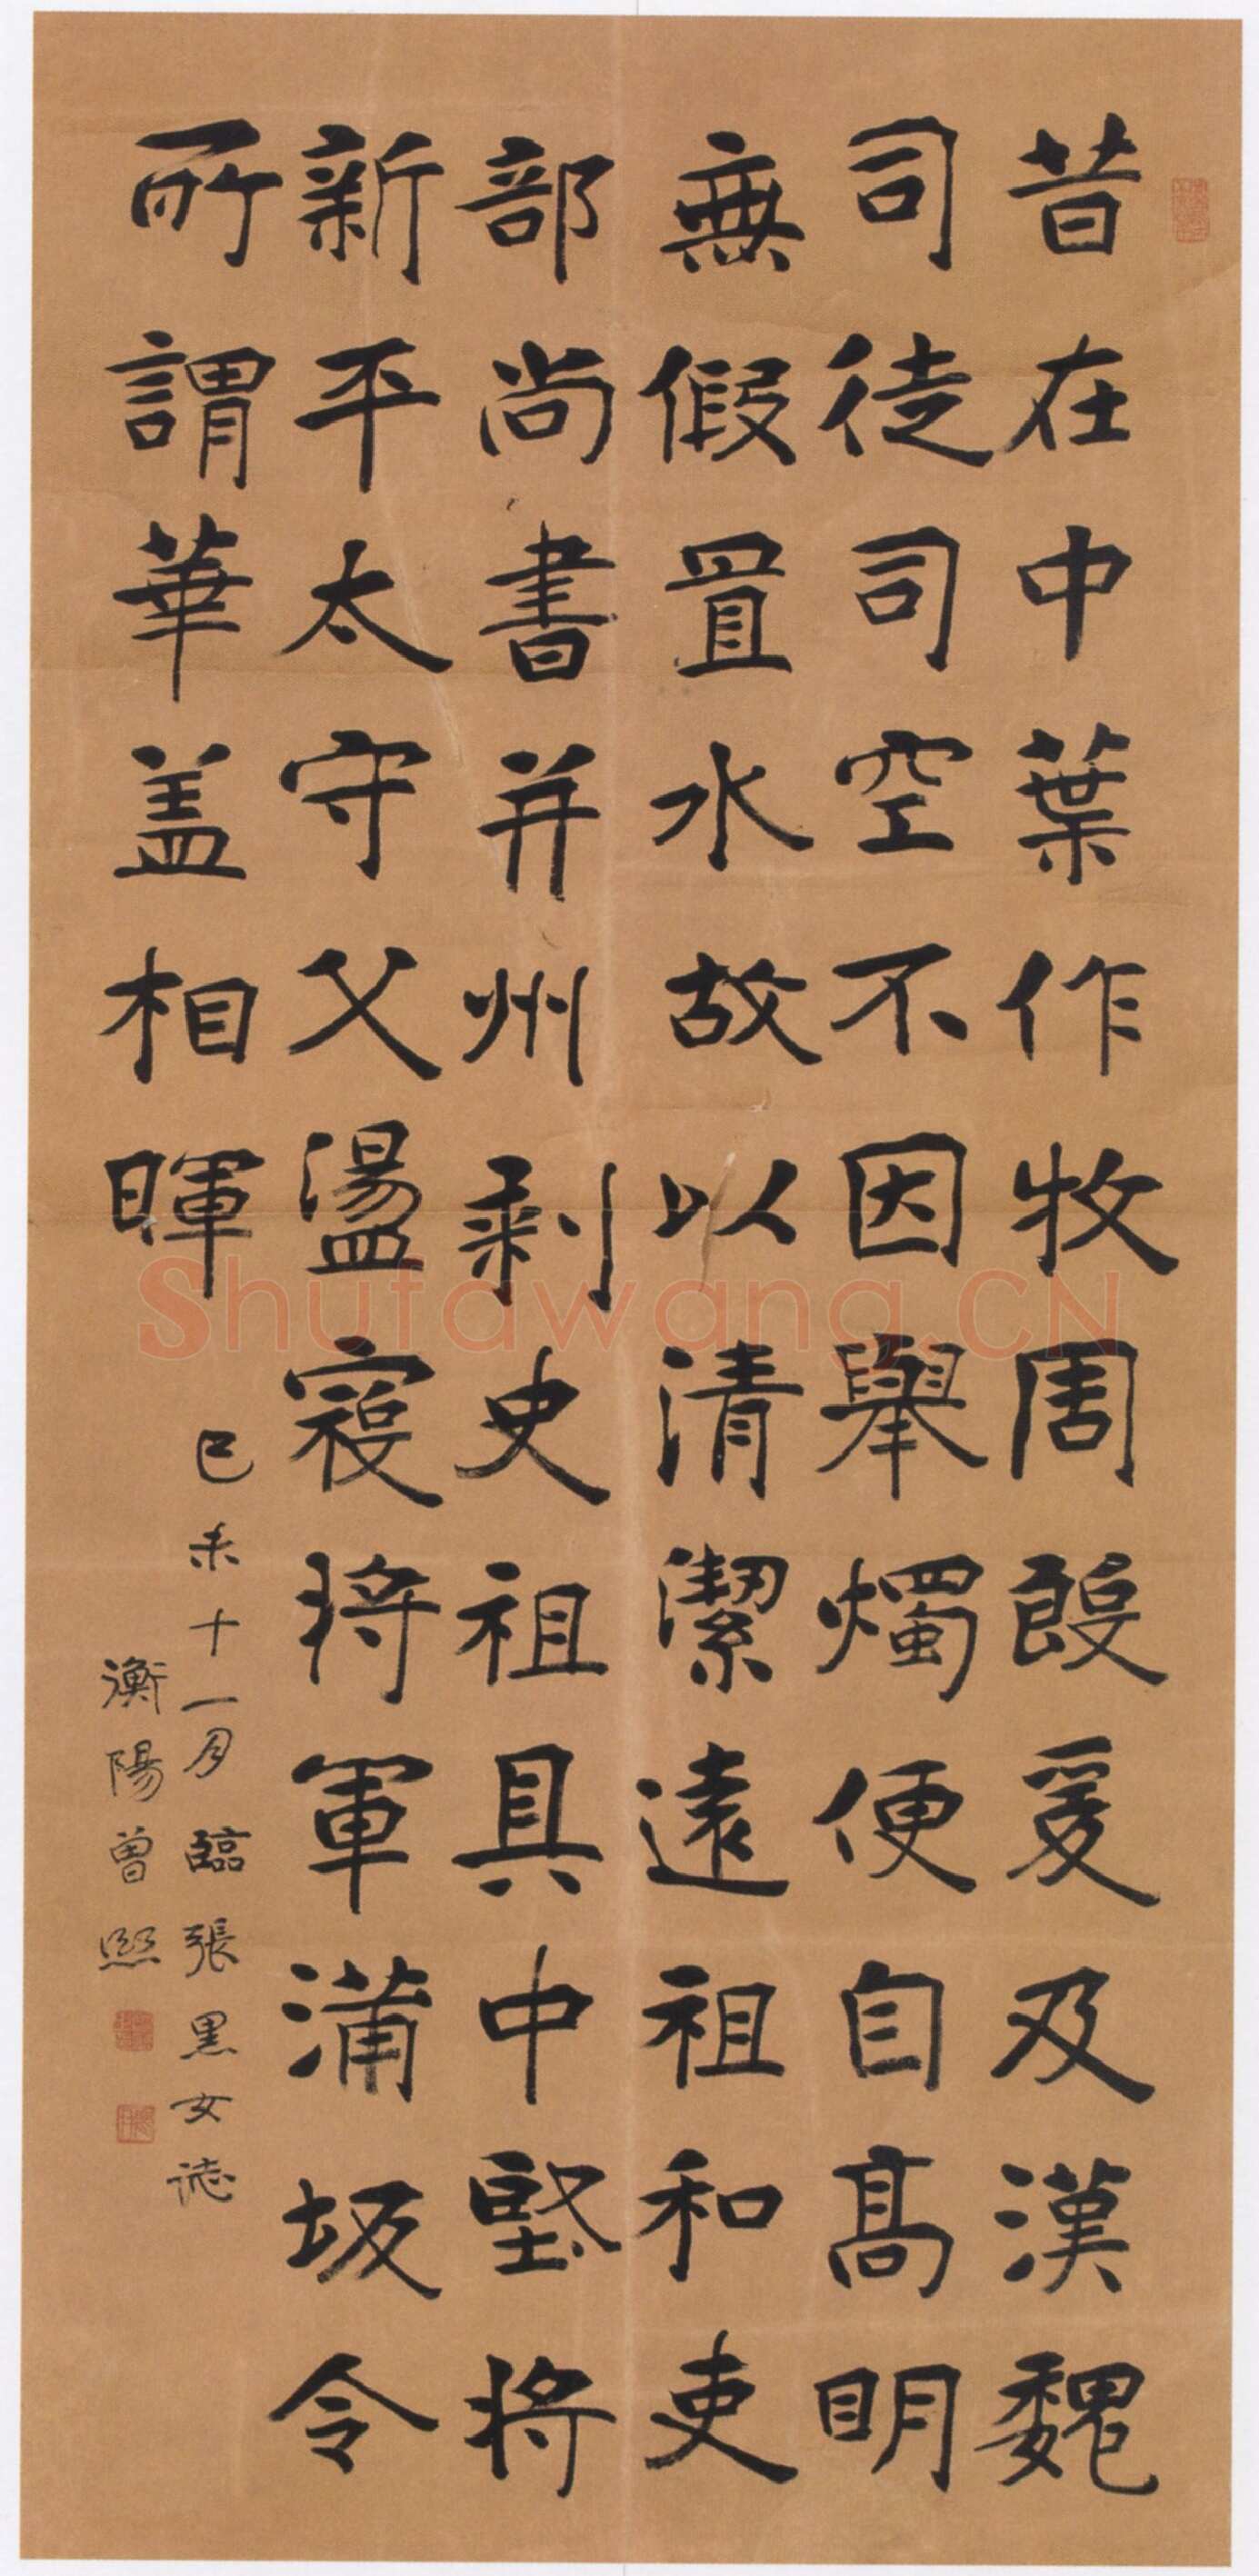 昔在中葉作牧周殷爰及漢魏
司徒司空不因舉燭便自高明
無假置水故以清潔遠祖和吏
部尚書并州刺史祖具中堅將
新平太守父盪寇將軍蒲坂令
所謂華蓋相暉
己未十一月臨張黑女誌
衡陽曾熙
Shufawang.CN